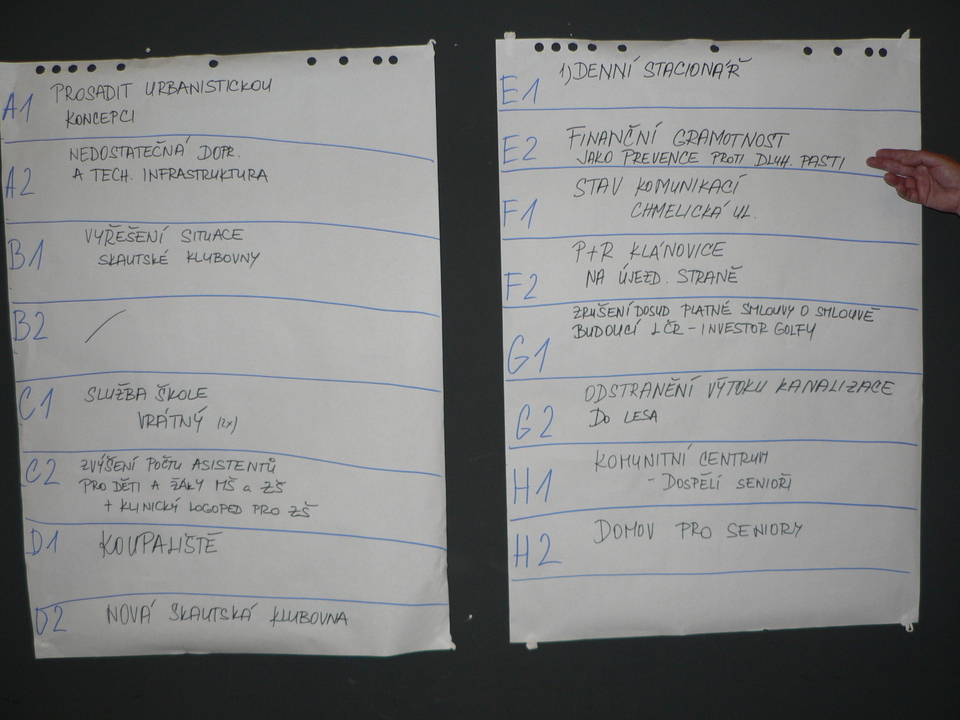 A1 PROSADIT URBANISTICKOU
KONCEPCI
A2 NEDOSTATEČNÁ DOPR.
A TECH. INFRASTRUKTURA
B1 VYŘEŠENÍ SITUACE
SKAUTSKÉ KLUBOVNY
B2 /
C1 SLUŽBA ŠKOLE
VRÁTNÝ (2x)
C2 ZVÝŠENÍ POČTU ASISTENTŮ
PRO DĚTI A ŽÁKY MŠ a ZŠ
+ KLINICKÝ LOGOPED PRO ZŠ
D1 KOUPALIŠTĚ
D2 NOVÁ SKAUTSKÁ KLUBOVNA
E1 1) DENNÍ STACIONÁŘ
E2 FINANČNÍ GRAMOTNOST
JAKO PREVENCE PROTI DLUH. PASTI
F1 STAV KOMUNIKACÍ
CHMELICKÁ UL.
F2 P+R KLÁNOVICE
NA ÚJEZD. STRANĚ
G1 ZRUŠENÍ DOSUD PLATNÉ SMLOUVY O SMLOUVĚ
BUDOUCÍ LČR - INVESTOR GOLFY
G2 ODSTRANĚNÍ VÝTOKU KANALIZACE
DO LESA
H1 KOMUNITNÍ CENTRUM
- DOSPĚLÍ SENIOŘI
H2 DOMOV PRO SENIORY